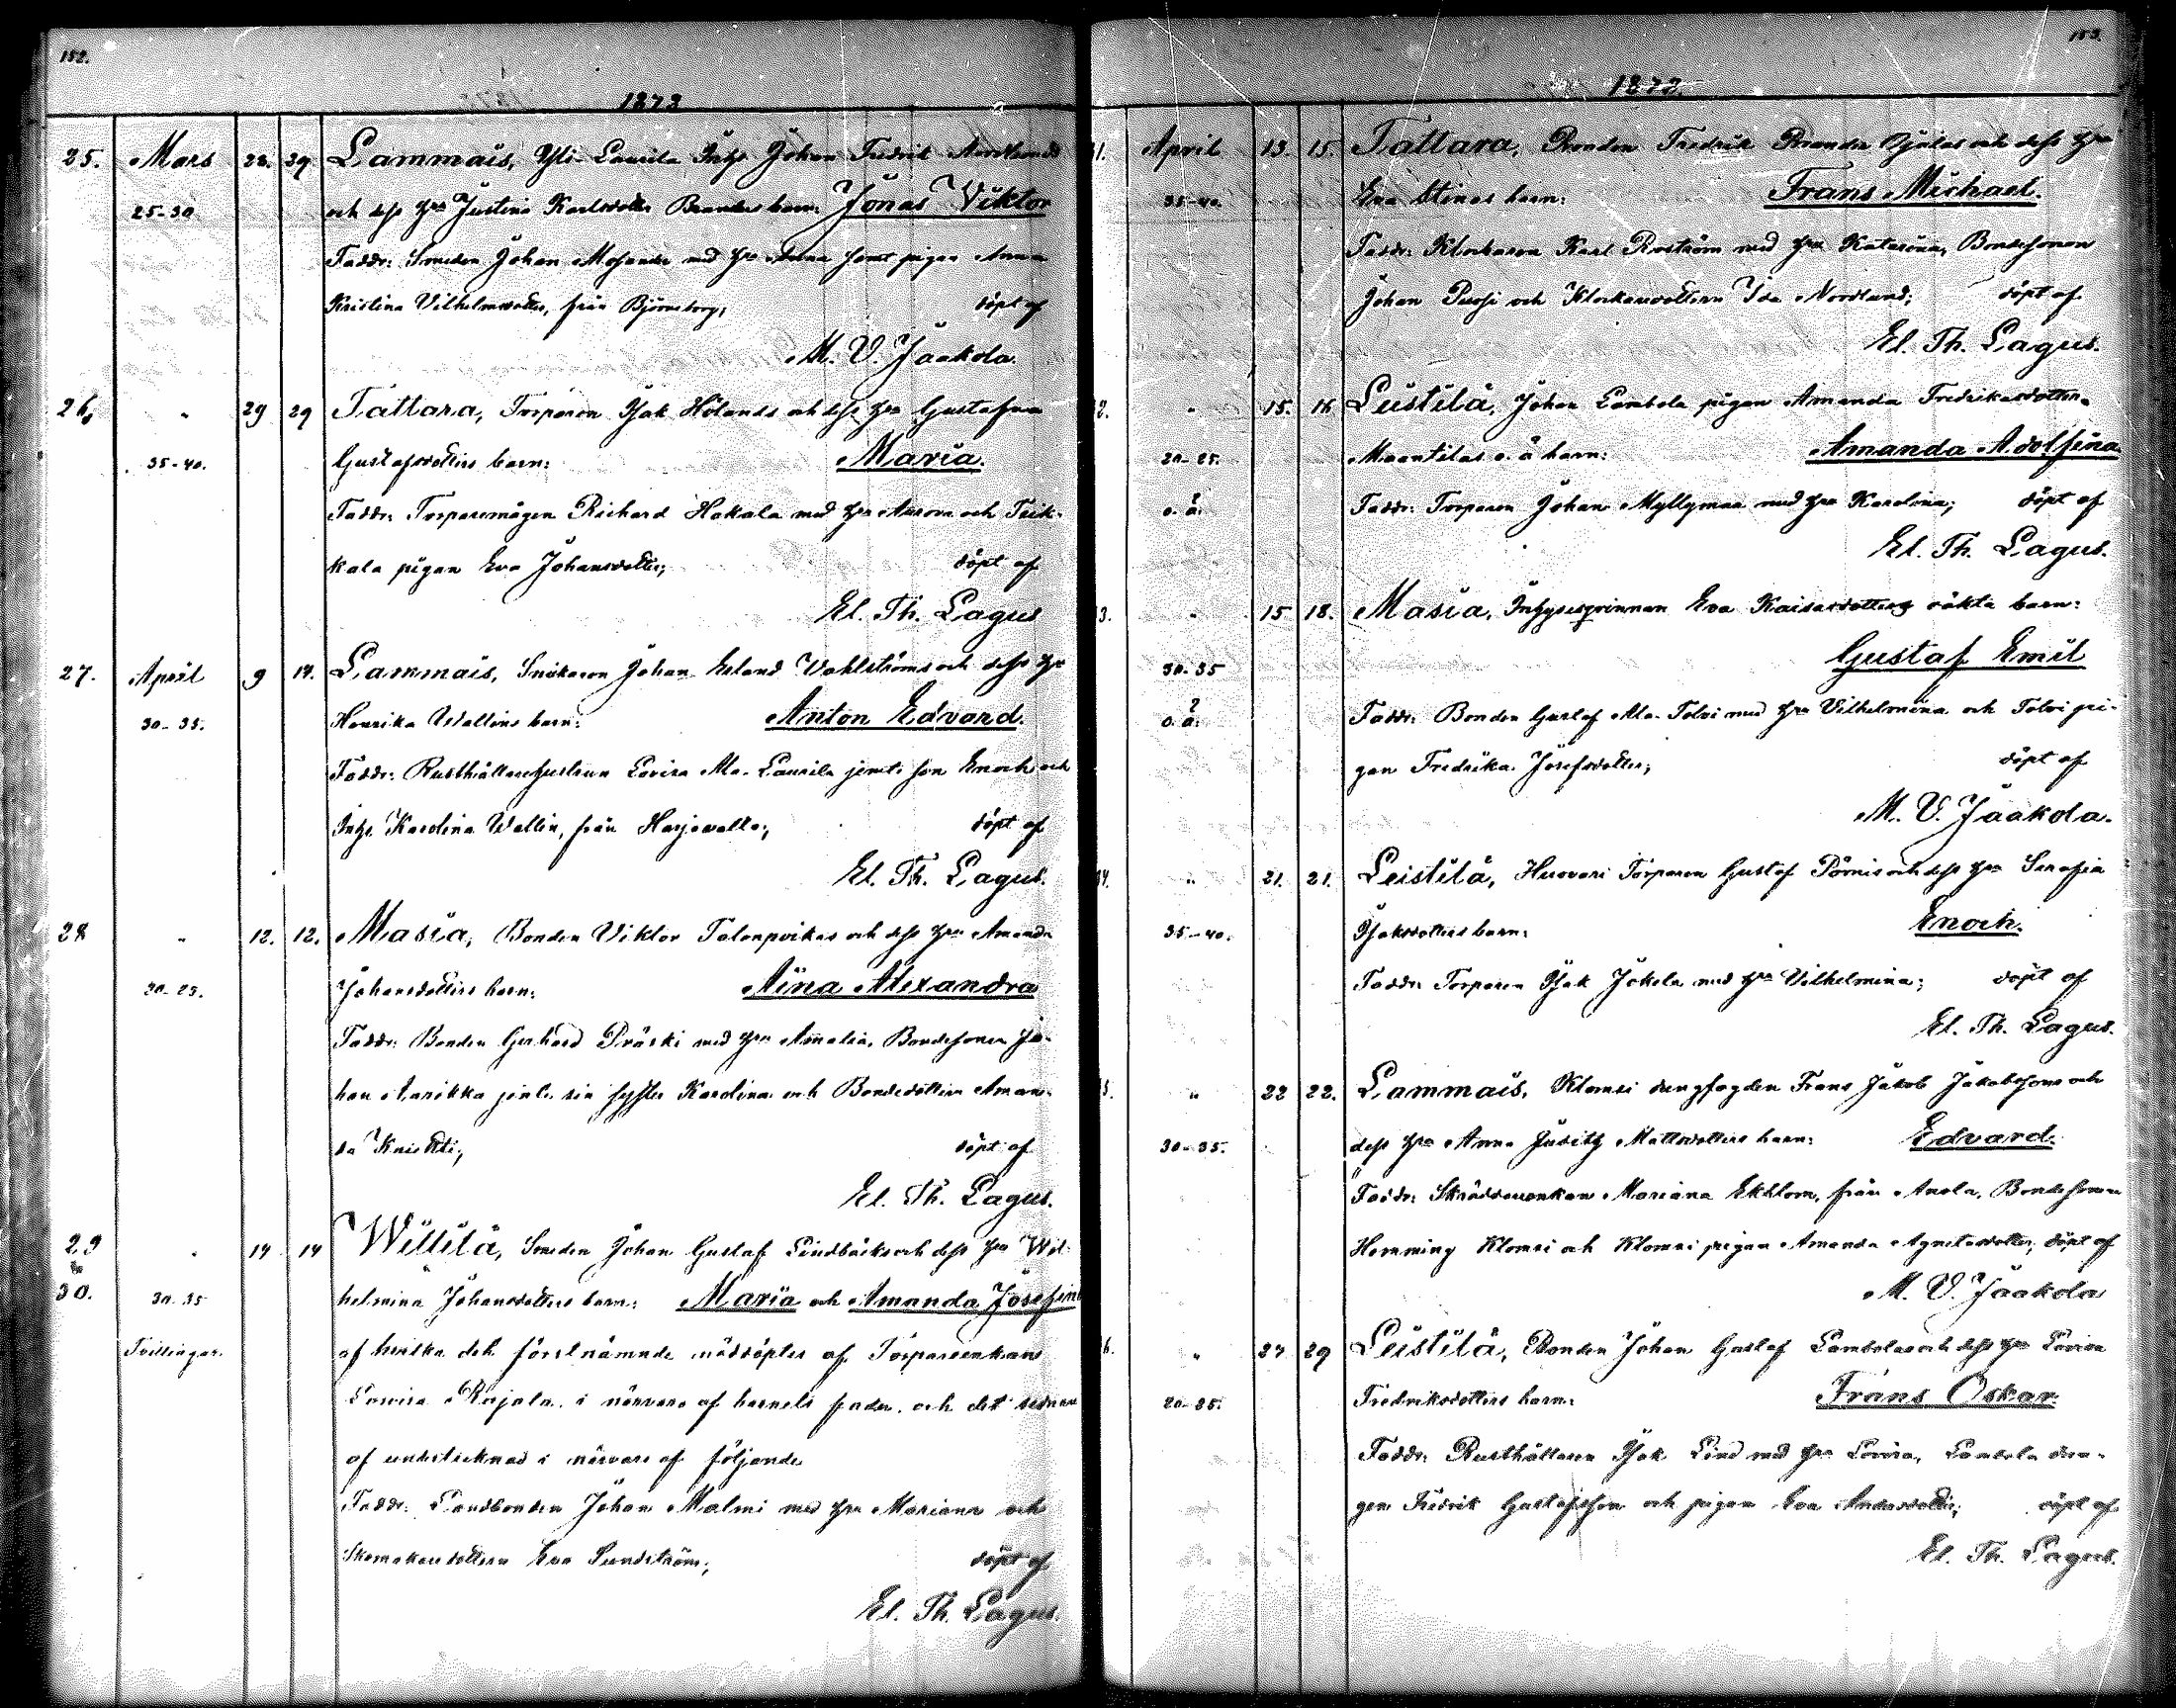 152.
1873
25. Mars 22. 29 Lammais, Yli-Laurila Inhs Johan Fredrik Nordlunds
25-30 och dess hru Justina Karlsdotter Branders barn: Jonas Viktor
Faddr: Smeden Johan Mosander med hru Anna samt pigan Anna
Kristina Vilhelmsdotter, från Björneborg; döpt af
M. V. Jaakola.
26, " 29 29 Tattara, Torparen Isak Hölands och dess hru Gustafva
35-40. Gustafsdotters barn: Maria.
Faddr: Torparemågen Richard Hakala med hru Aurora och Teik-
kala pigan Eva Johansdotter; döpt af
El. Th. Lagus
27. April 9 14. Lammais, Snikaren Johan Erland Vahlströms och dess hru
30-35. Henrika Wallins barn: Anton Edvard.
Faddr: Rusthållarehustrun Lovisa Ala-Laurila jemte son Enoch och
Inhs. Karolina Wallin, från Harjavalta; döpt af
El. Th. Lagus.
28 " 12. 12. Masia, Bonden Viktor Talonpoikas och dess hru Amanda
20-25. Johansdotters barn: Aina Alexandra
Faddr: Bonden Gerhard Präski med hru Amalia, Bondesonen Jo-
han Aarikka jemte sin syster Karolina och Bondedottern Aman-
da Knichti; döpt af
El. Th. Lagus.
29 " 14 14 Willilä, Smeden Johan Gustaf Lindbäcks och dess hru Wil-
&
30. 30-35 helmina Johansdotters barn: Maria och Amanda Josefina
Tvillingar. af hvilka det förstnämnde nöddöptes af Torpareenkan
Lovisa Rajala i närvaro af barnets fader och det sednare
af undertecknad i närvaro af följande
Faddr: Landbonden Johan Malmi med hru Mariana och
Skomakaredottern Eva Sundström; döpt af
El. Th. Lagus.
153.
1873.
31. April 13. 15. Tattara, Bonden Fredrik Brander Ojalas och dess hru
35-40. Eva Stinas barn: Frans Michael.
Faddr: Klockaren Karl Roström med hru Katarina, Bondesonen
Johan Pussi och Klockaredottern Ida Nordlund; döpt af
El. Th. Lagus.
32. " 15. 16 Leistilä, Johan Lambola pigan Amanda Fredrikasdotter
20-25. Maantilas o. ä barn: Amanda Adolfina
o. ä. Faddr: Torparen Johan Myllymaa med hru Karolina; döpt af
El. Th. Lagus.
33. " 15 18. Masia, Inhysesqvinnan Eva Kaisasdotters oäkta barn:
30-35 Gustaf Emil
o. ä. Faddr: Bonden Gustaf Ala-Tolvi med hru Vilhelmina och Tolvi pi-
gan Fredrika Josefsdotter; döpt af
M. V. Jaakola.
34. " 21. 21. Leistilä, Huovari Torparen Gustaf Pörnis och dess hru Serafia
35-40. Isaksdotters barn: Enoch.
Faddr: Torparen Isak Jokela med hru Vilhelmina; döpt af
El. Th. Lagus.
35. " 22 22. Lammais, Klomsi drengfogden Frans Jakob Jakobssons och
30-35. dess hru Anna Judith Mattsdotters barn: Edvard.
Faddr: Skräddareenkan Mariana Ekblom, från Anola, Bondesonen
Hemming Klomsi och Klomsi pigan Amanda Agnetasdotter; döpt af
M. V. Jaakola
36. " 27 29 Leistilä, Bonden Johan Gustaf Lambolas och dess hru Lovisa
20-25. Fredriksdotters barn: Frans Oskar.
Faddr: Rusthållaren Isak Lind med hru Lovisa, Lambola dren-
gen Fredrik Gustafsson och pigan Eva Andersdotter; döpt af
El. Th. Lagus.